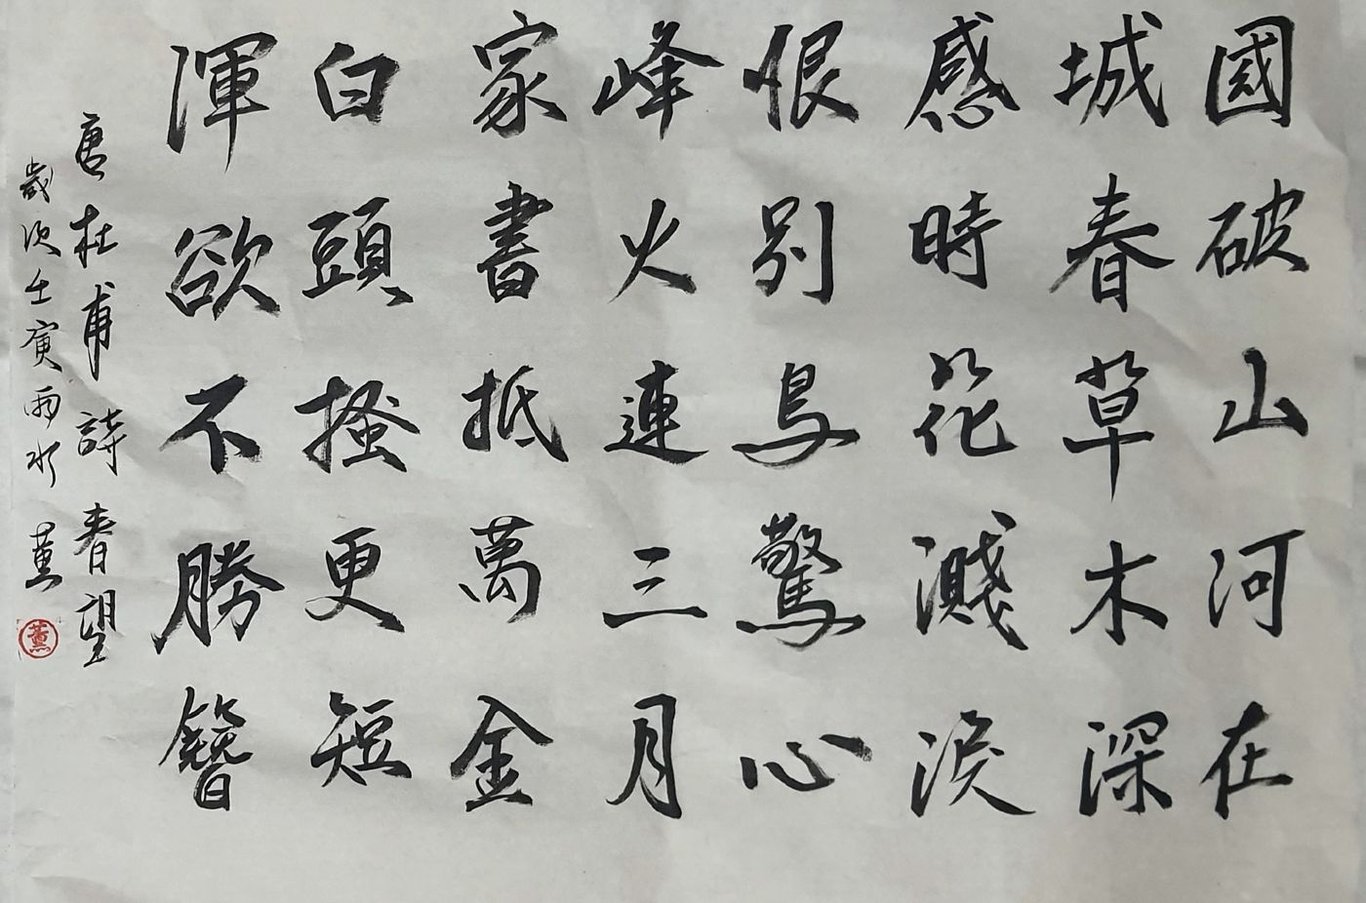 國破山河在
城春草木深
感時花濺淚
恨別鳥驚心
峰火連三月
家書抵萬金
白頭搔更短
渾欲不勝簪
唐杜甫詩春望
歲次壬寅雨水 薰
薰